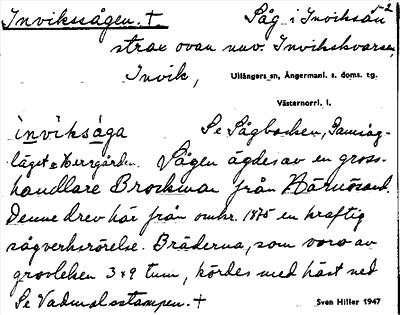 Invikssågen. + Såg i Inviksån
strax ovan nuv. Invikskvarnen,
Invik, Ullångers sn, Ångermanl. s. doms. tg.
Västernorrl. l.
inviksåga Se Sågbacken,
läget o Herrgården. Sågen ägdes av en gross-
handlare Brockman från Härnösand.
Denne drev här från omkr. 1875 en kraftig
sågverksrörelse. Bräderna, som voro av
grovleken 3 x 9 tum, kördes med häst ned
Se Vadmalsstampen. +
Sven Hiller 1947